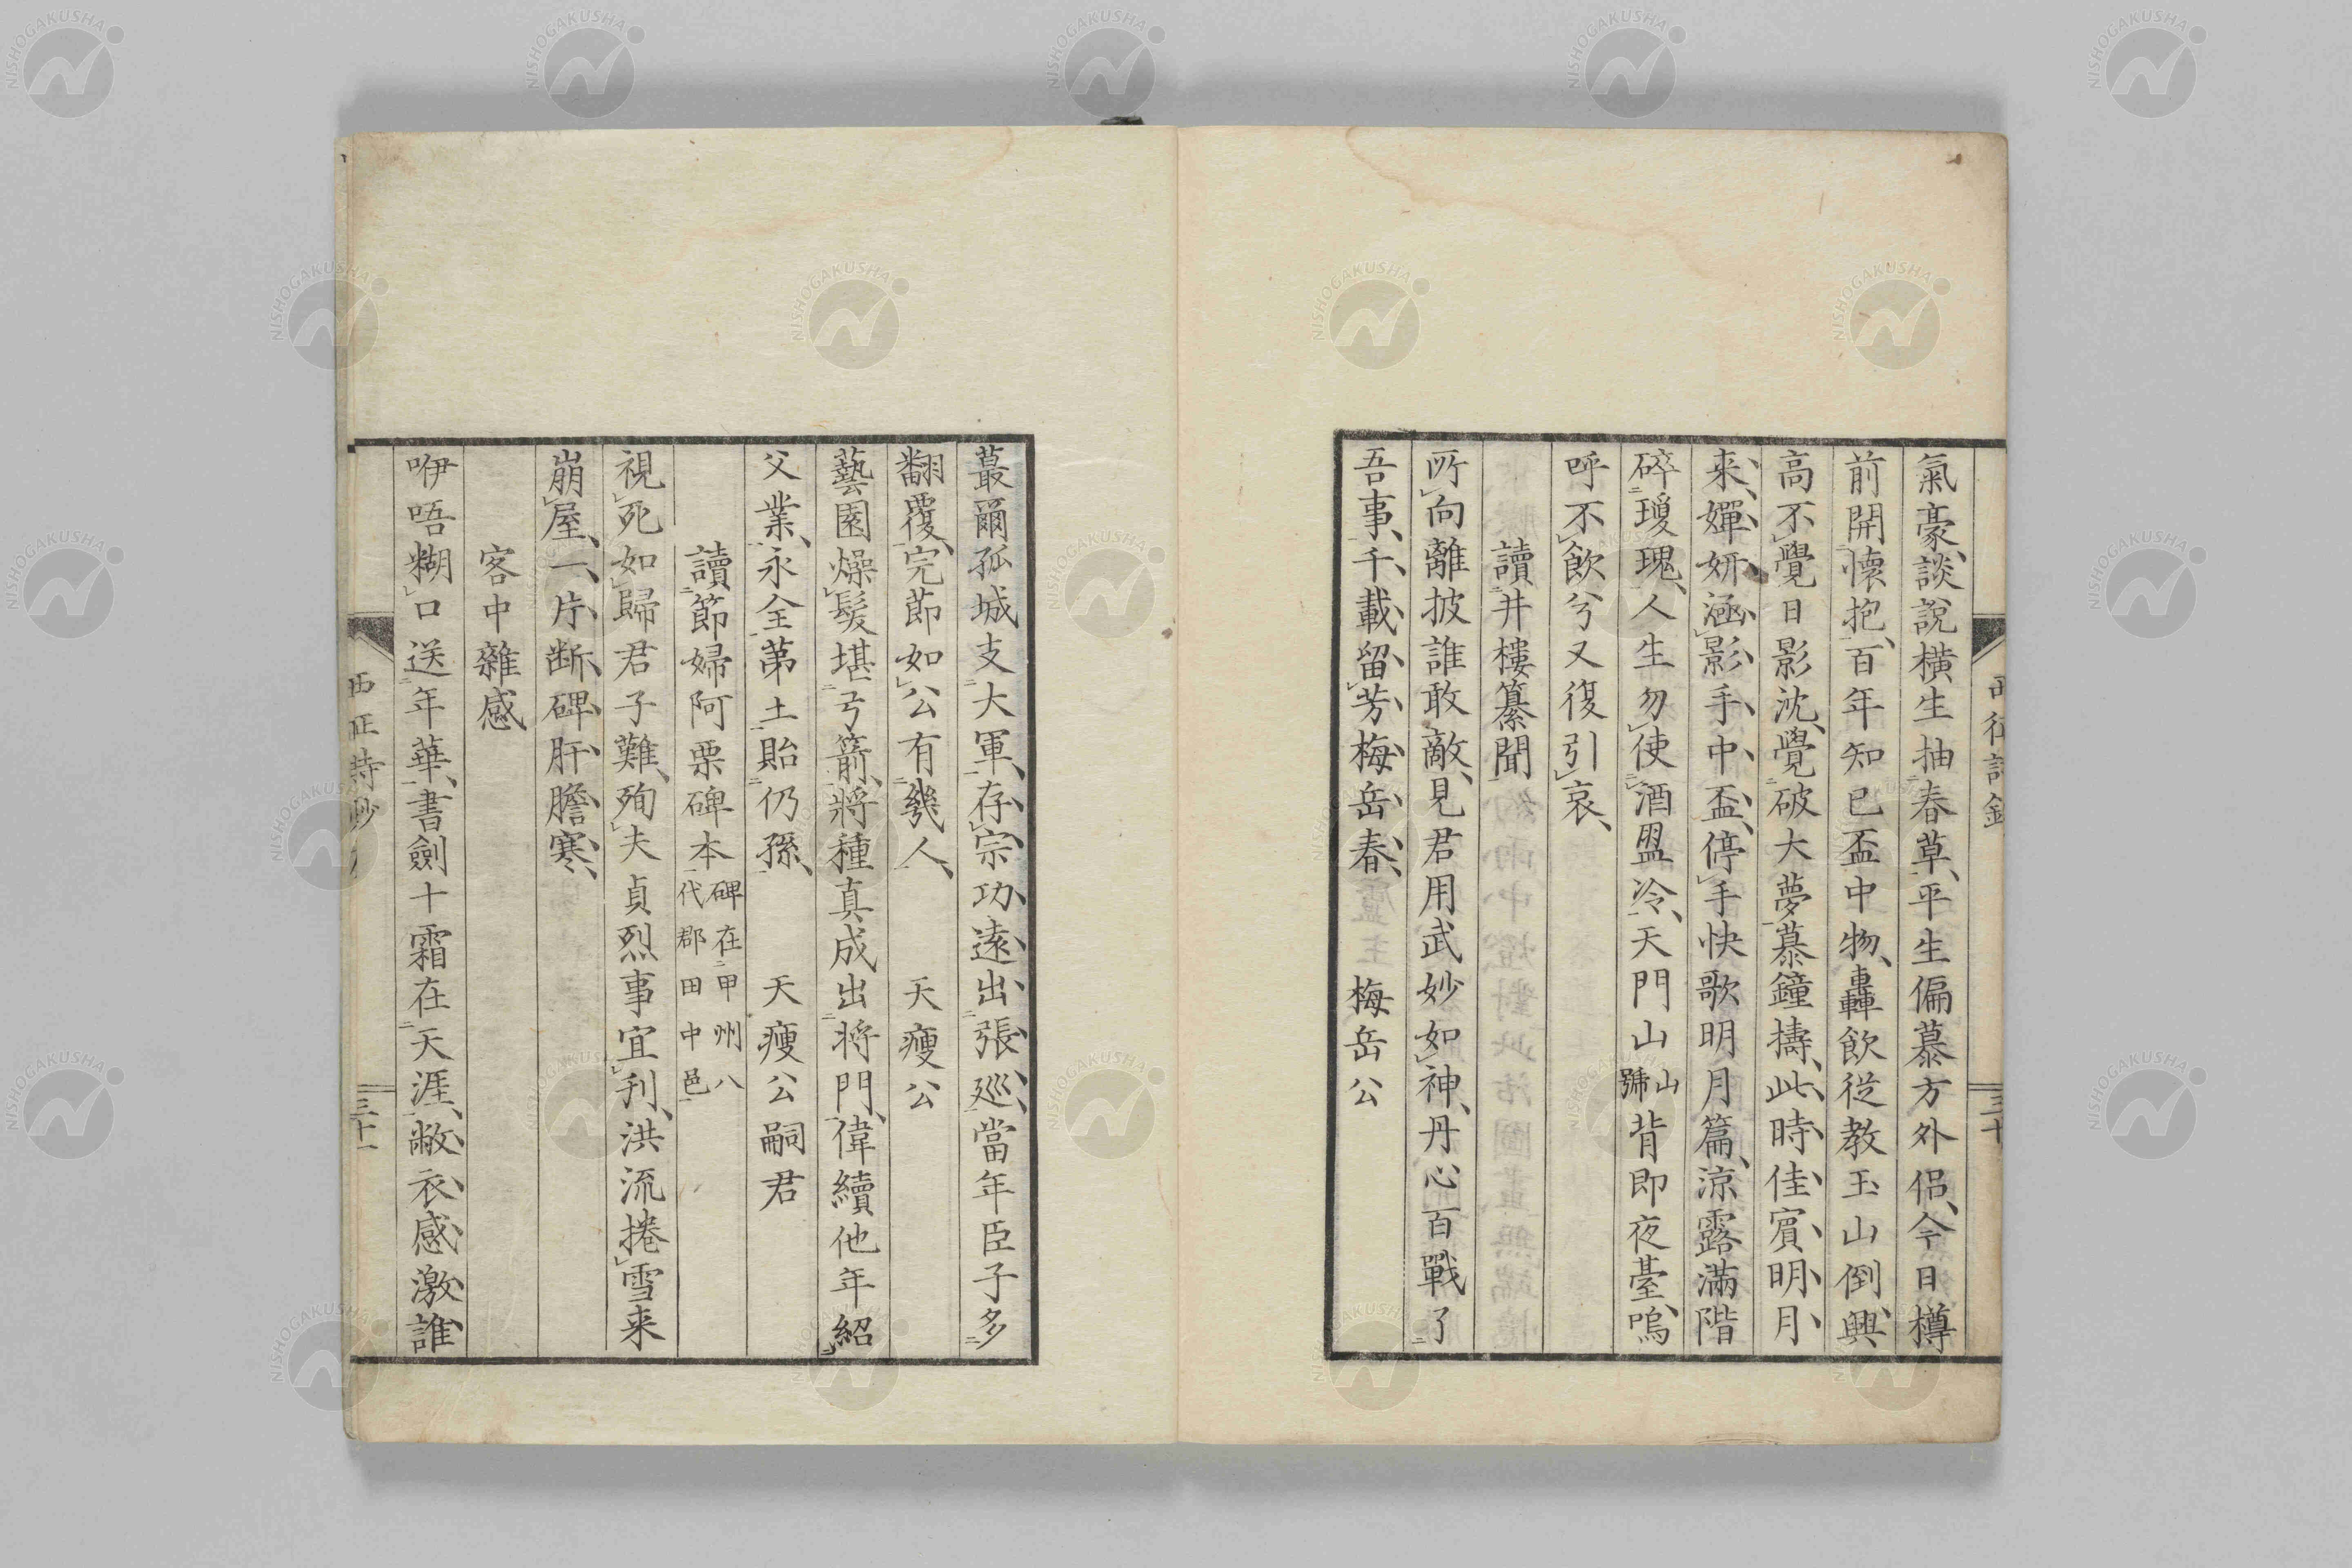 氣豪談說橫生抽春草平生偏慕方外侶今日樽
前開懷抱百年知己盃中物轟飲從教玉山倒興
高不覺日影沈覺破大夢慕鐘擣此時佳賓明月
来嬋妍涵影手中盃停手快歌明月篇涼露滿階
碎瓊瑰人生勿使酒盟冷天門山山號背即夜臺嗚
呼不飲兮又復引哀
讀井樓纂聞
所向離披誰敢敵見君用武妙如神丹心百戰了
吾事千載留芳梅岳春 梅岳公
三十
蕞爾孤城支大軍存宗功遠出張巡當年臣子多
翻覆完節如公有幾人 天瘦公
藝園燥髮堪弓箭將種真成出將門偉續他年紹
父業永全第土貽仍孫 天瘦公嗣君
讀節婦阿栗碑本碑在甲州八代郡田中邑
視死如歸君子難殉夫貞烈事宜刋洪流捲雪来
崩屋一片断碑肝膽寒
客中雜感
咿唔糊口送年華書劍十霜在天涯敝衣感激誰
西征詩鈔
三十一
NISHOGAKUSHA